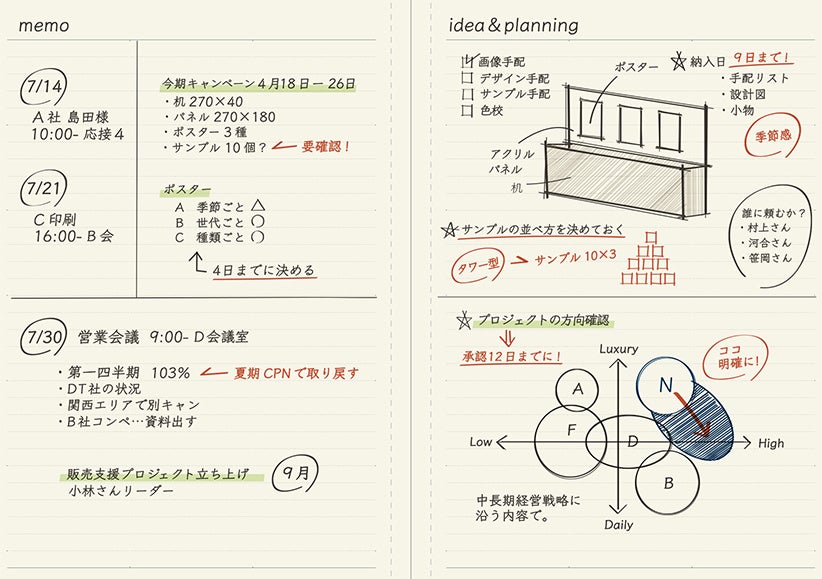 memo
7/14
A社 島田様
10:00- 応接4
7/21
C印刷
16:00- B会
今期キャンペーン4月18日ー26日
・机 270×40
・パネル 270×180
・ポスター3種
・サンプル10個？ ← 要確認！
ポスター
A 季節ごと △
B 世代ごと ○
C 種類ごと ○
4日までに決める
7/30 営業会議 9:00- D会議室
・第一四半期 103% ← 夏期CPNで取り戻す
・DT社の状況
・関西エリアで別キャン
・B社コンペ…資料出す
販売支援プロジェクト立ち上げ 9月
小林さんリーダー
idea & planning
☑ 画像手配
□ デザイン手配
□ サンプル手配
□ 色校
ポスター
アクリル
パネル
机
☆ 納入日 9日まで！
・手配リスト
・設計図
・小物
季節感
☆ サンプルの並べ方を決めておく
タワー型 → サンプル10×3
誰に頼むか？
・村上さん
・河合さん
・笹岡さん
☆ プロジェクトの方向確認
承認12日までに！
Luxury
ココ
明確に！
A
N
F
D
Low
High
B
中長期経営戦略に
沿う内容で。
Daily